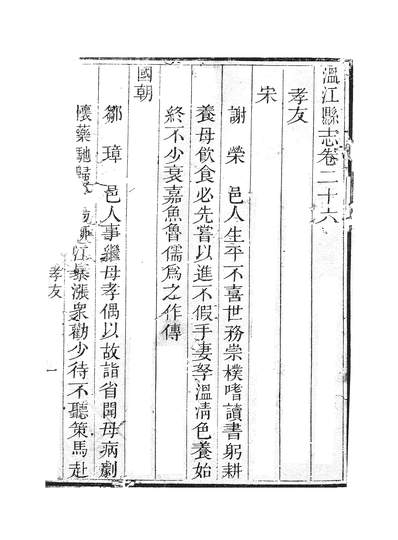 溫江縣志卷二十六
孝友
宋
謝榮 邑人生平不喜世務崇樸嗜讀書躬耕
養母飲食必先嘗以進不假手妻孥溫凊色養始
終不少衰嘉魚魯儒爲之作傳
國朝
鄒璋 邑人事繼母孝偶以故詣省聞母病劇
懷藥馳歸 江暴漲衆勸少待不聽策馬赴
孝友 一